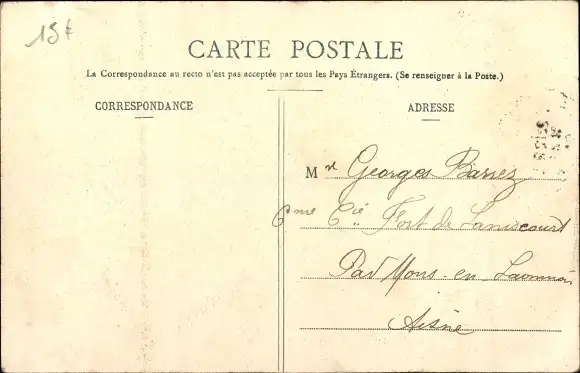 15€
CARTE POSTALE
La Correspondance au recto n'est pas acceptée par tous les Pays Étrangers. (Se renseigner à la Poste.)
CORRESPONDANCE
ADRESSE
Mr Georges Barrez
6me Cie Fort de Laniscourt
Par Mons-en Laonnois
Aisne